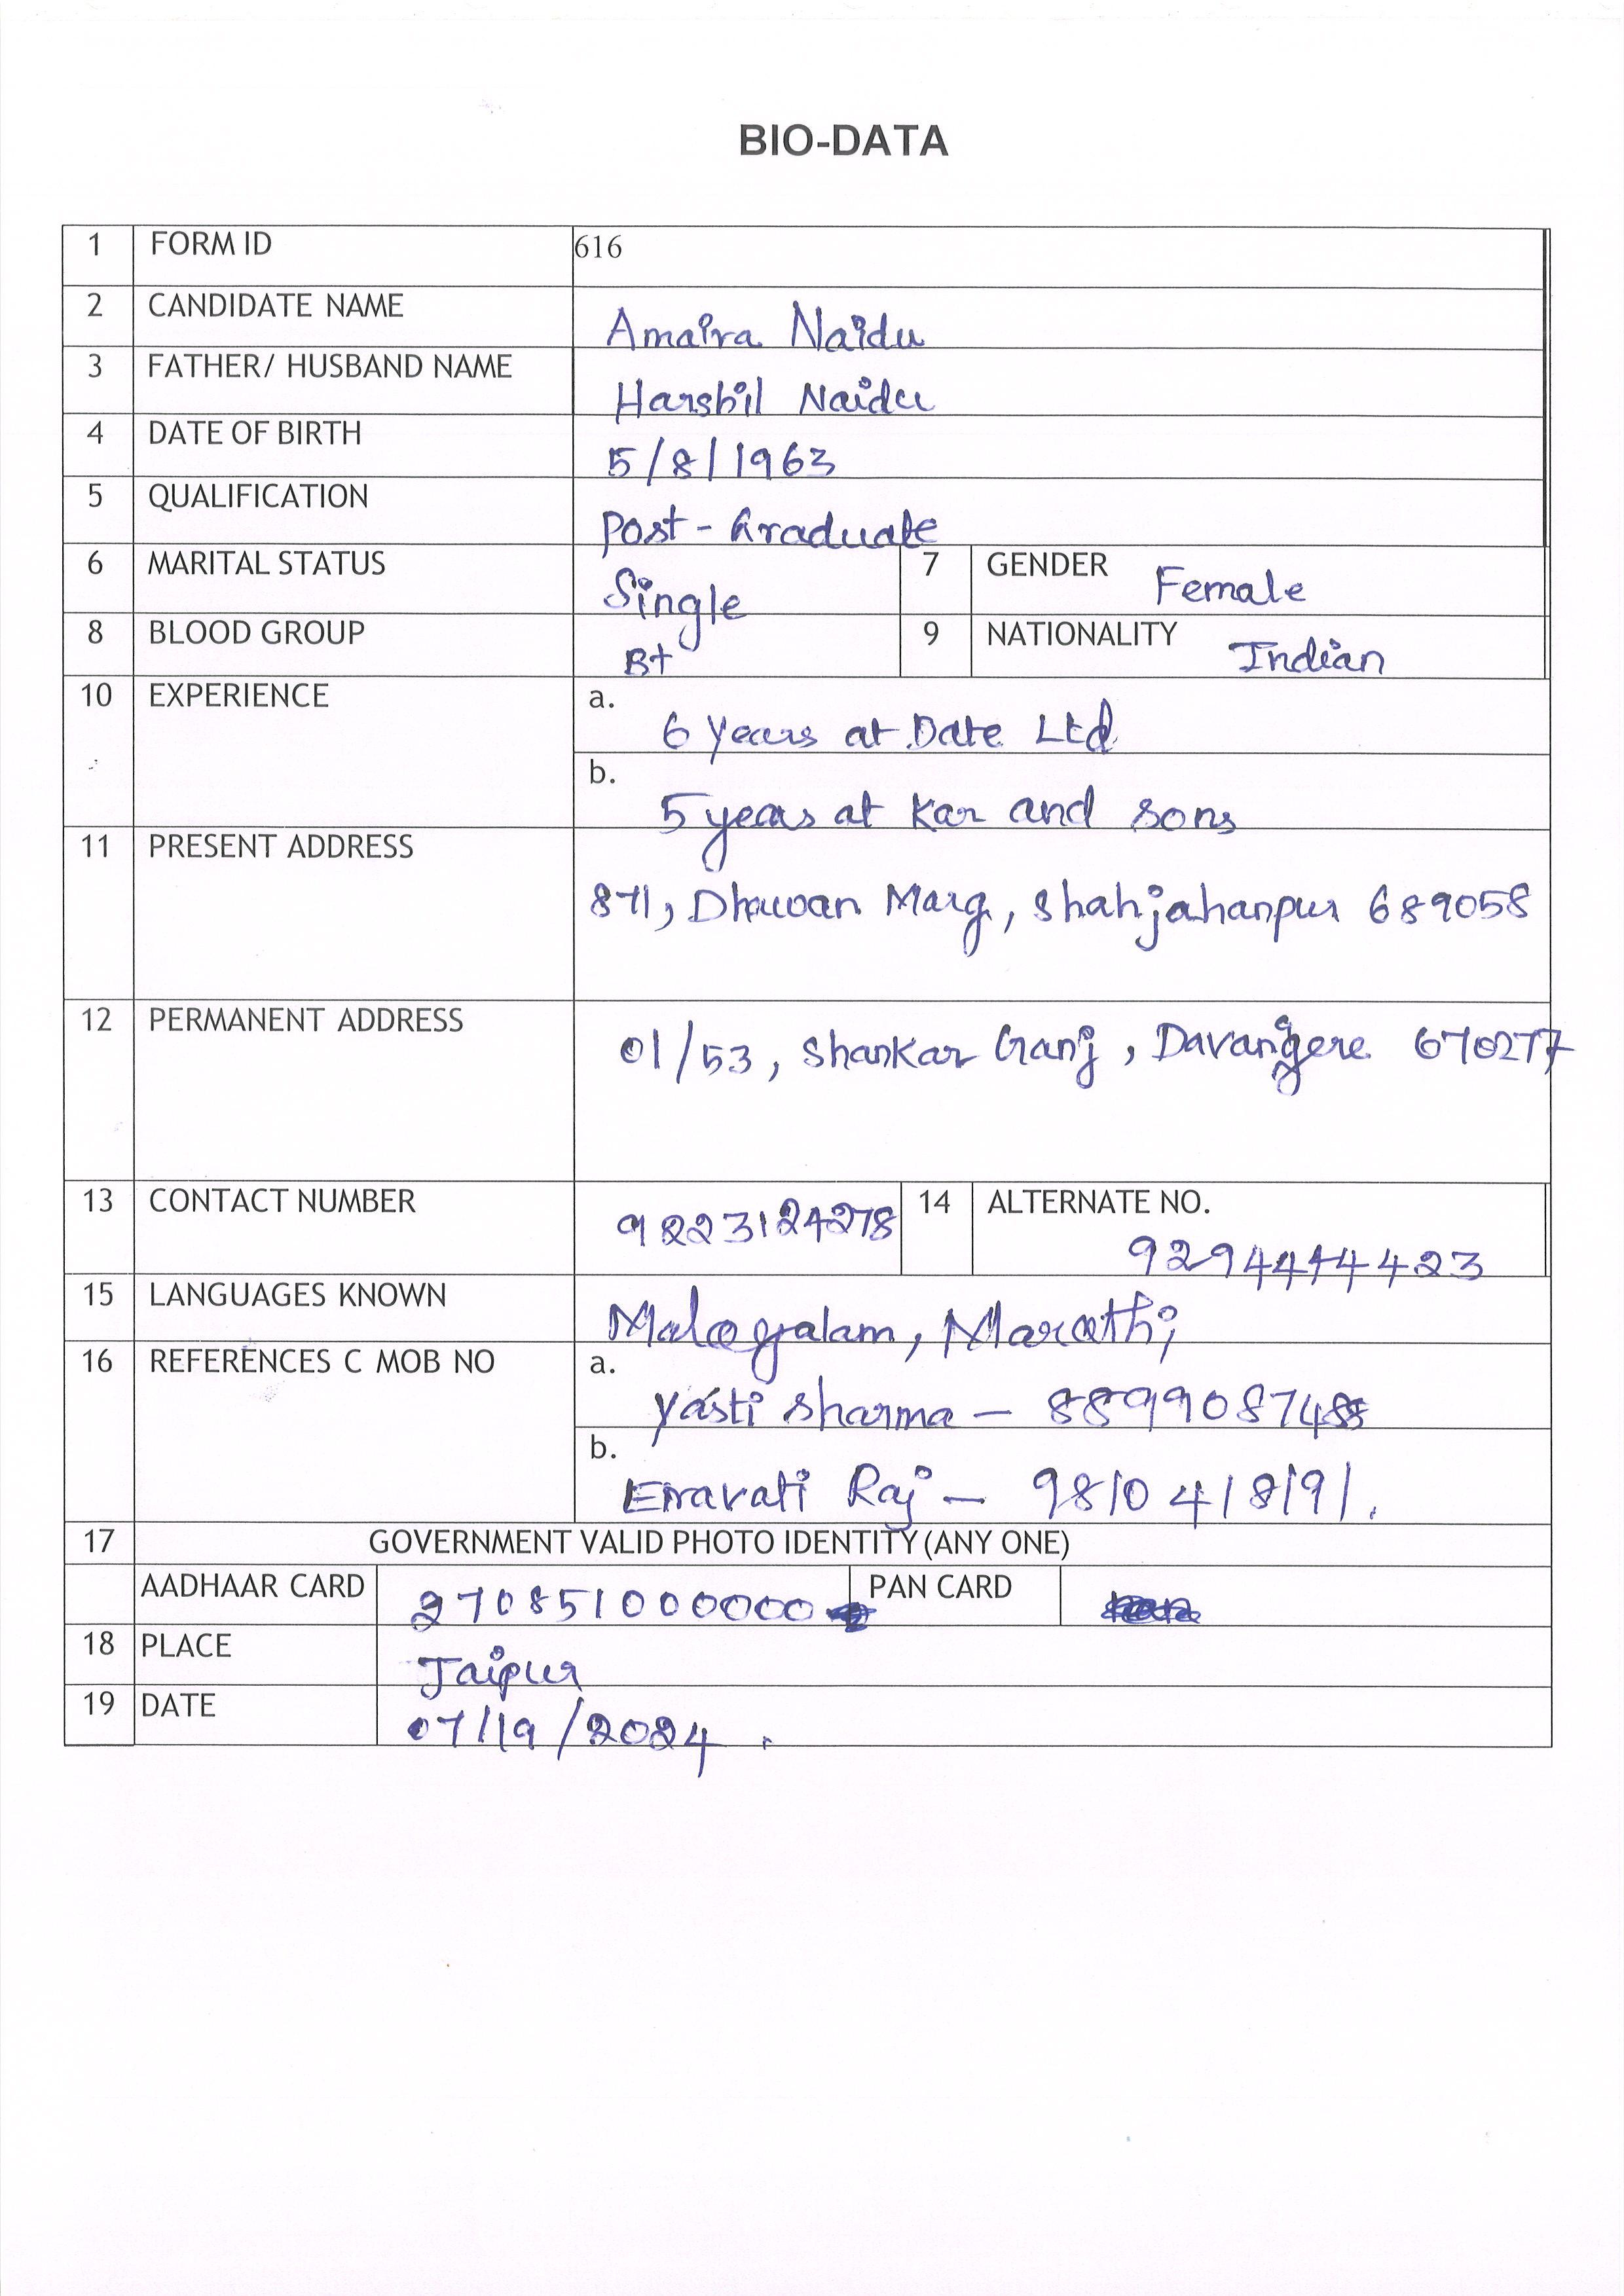 BIO-DATA
1 FORM ID 616
2 CANDIDATE NAME Amaira Naidu
3 FATHER/ HUSBAND NAME Harshil Naidu
4 DATE OF BIRTH 5/8/1963
5 QUALIFICATION Post-Graduate
6 MARITAL STATUS Single 7 GENDER Female
8 BLOOD GROUP B+ 9 NATIONALITY Indian
10 EXPERIENCE a. 6 years at Date Ltd
b. 5 years at Kar and sons
11 PRESENT ADDRESS
871, Dhawan Marg, Shahjahanpur 689058
12 PERMANENT ADDRESS 01/53, Shankar Ganj, Davangere 670277
13 CONTACT NUMBER 9223124278 14 ALTERNATE NO.
9294444423
15 LANGUAGES KNOWN Malayalam, Marathi
16 REFERENCES C MOB NO a. Yasti Sharma -
b. Eravati Raj - 9810418191.
17 GOVERNMENT VALID PHOTO IDENTITY (ANY ONE)
AADHAAR CARD 270851000000 PAN CARD
18 PLACE Jaipur
19 DATE 07/19/2024.